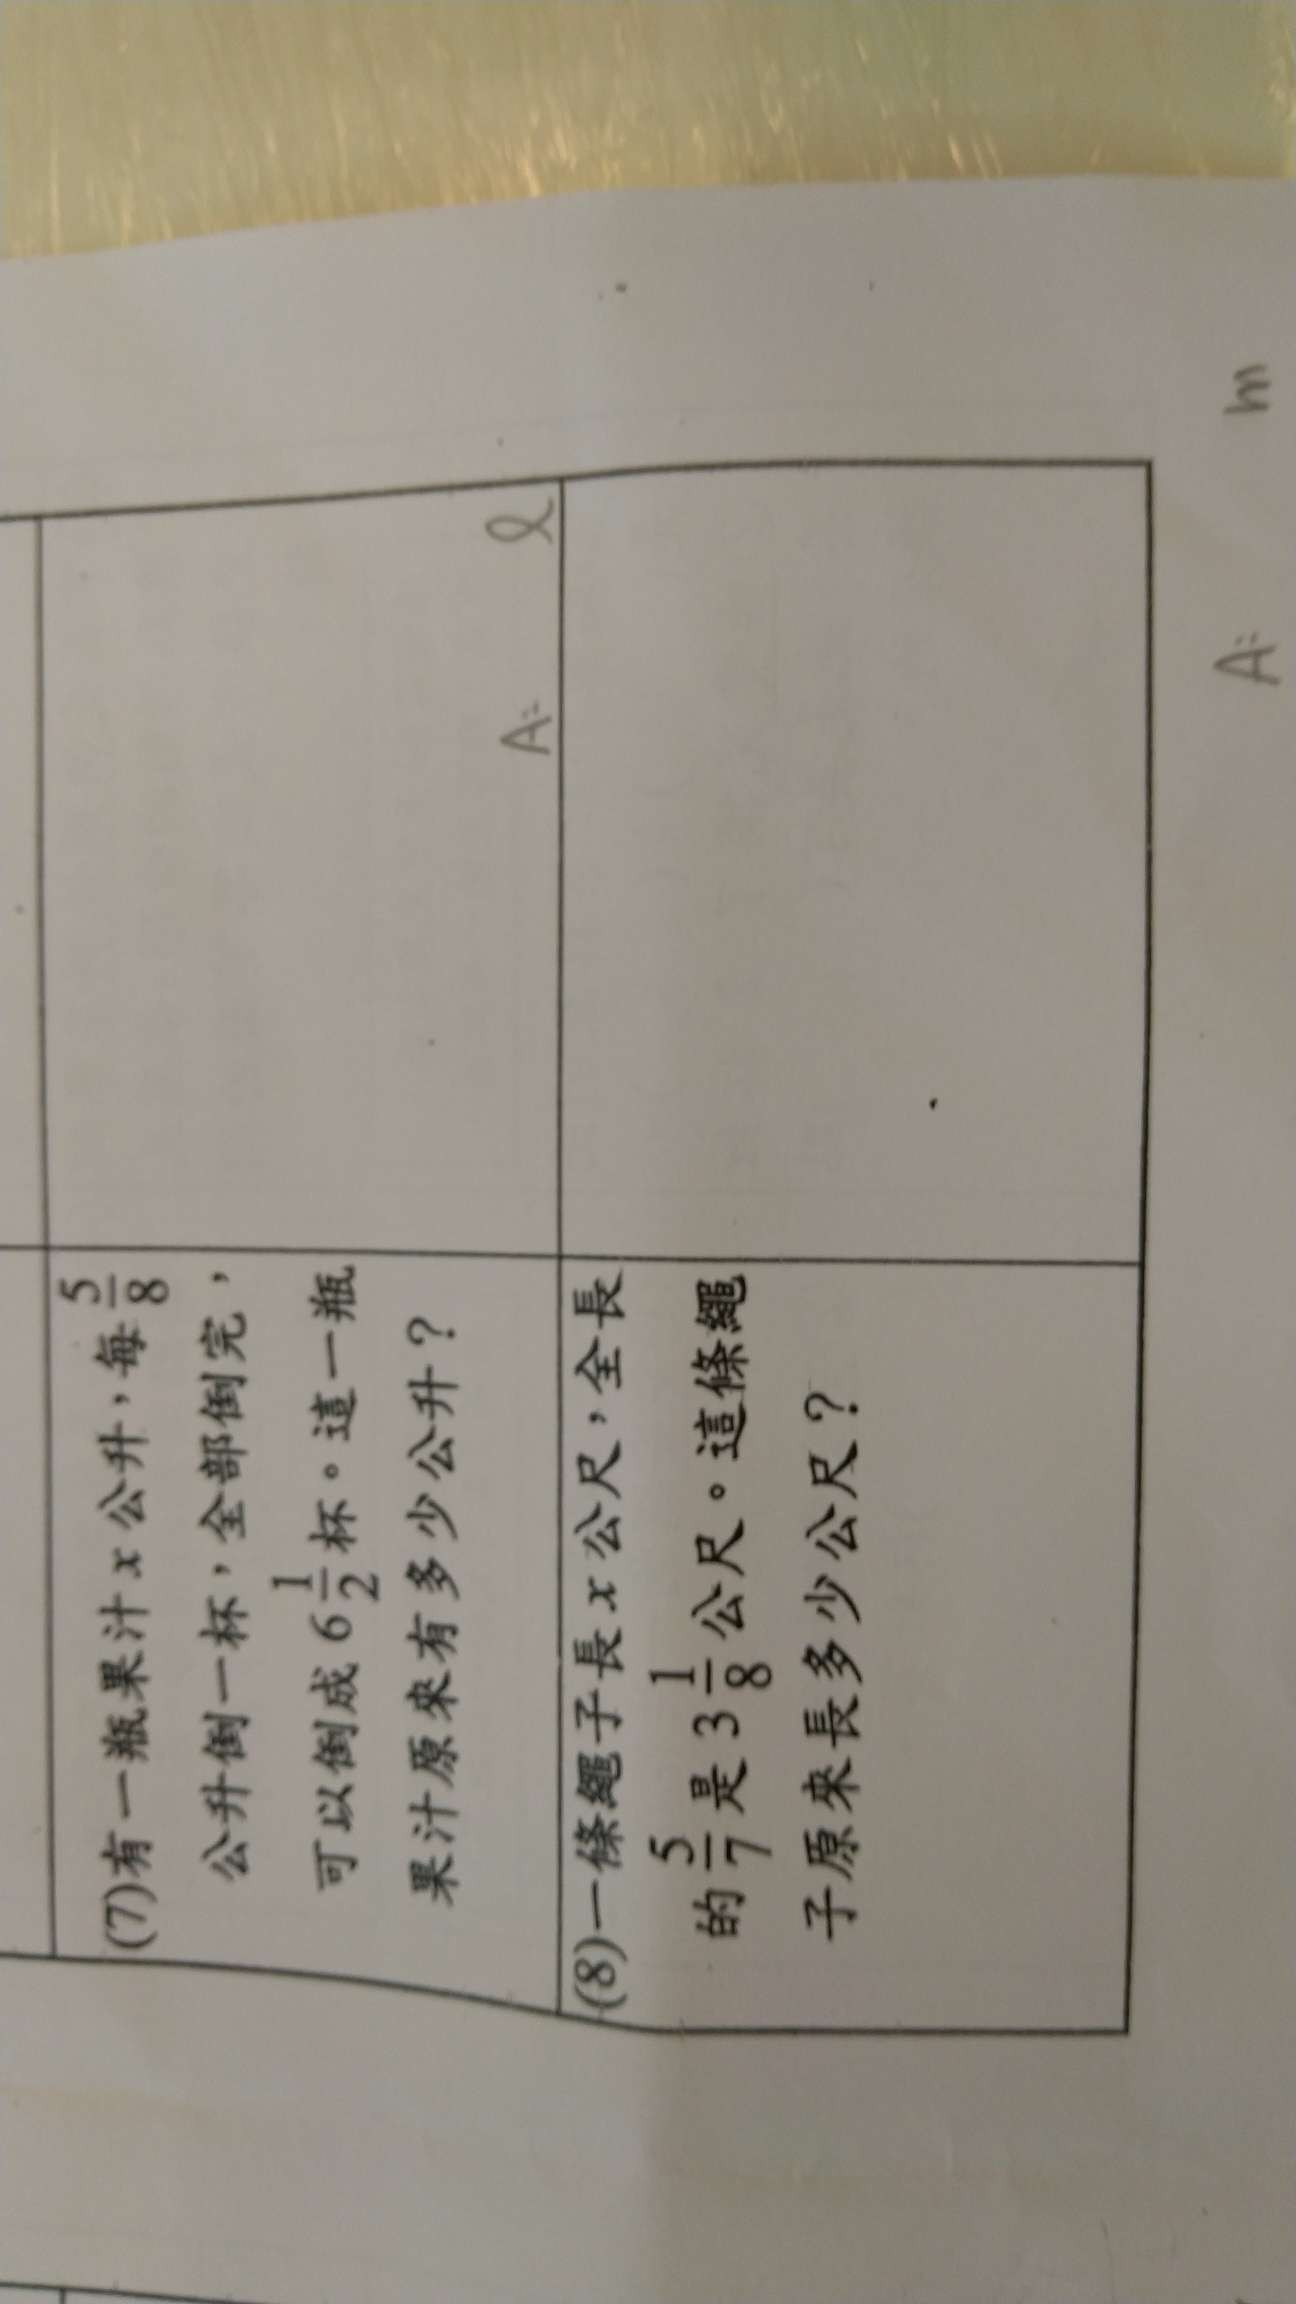 (7)有一瓶果汁 x 公升，每 5/8
公升倒一杯，全部倒完，
可以倒成 6 1/2 杯。這一瓶
果汁原來有多少公升？
A: ℓ
(8)一條繩子長 x 公尺，全長
的 5/7 是 3 1/8 公尺。這條繩
子原來長多少公尺？
A: m